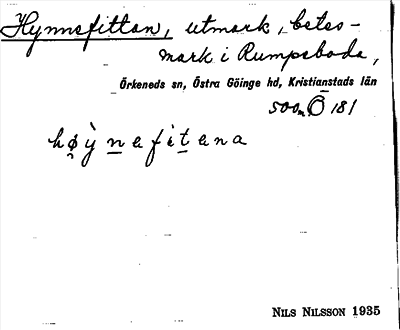 Hynnefittan, utmark, betes-
mark i Rumpeboda,
Örkeneds sn, Östra Göinge hd, Kristianstads län
500 m Ö 181
hø̯ỳn̲efit̲ena
NILS NILSSON 1935